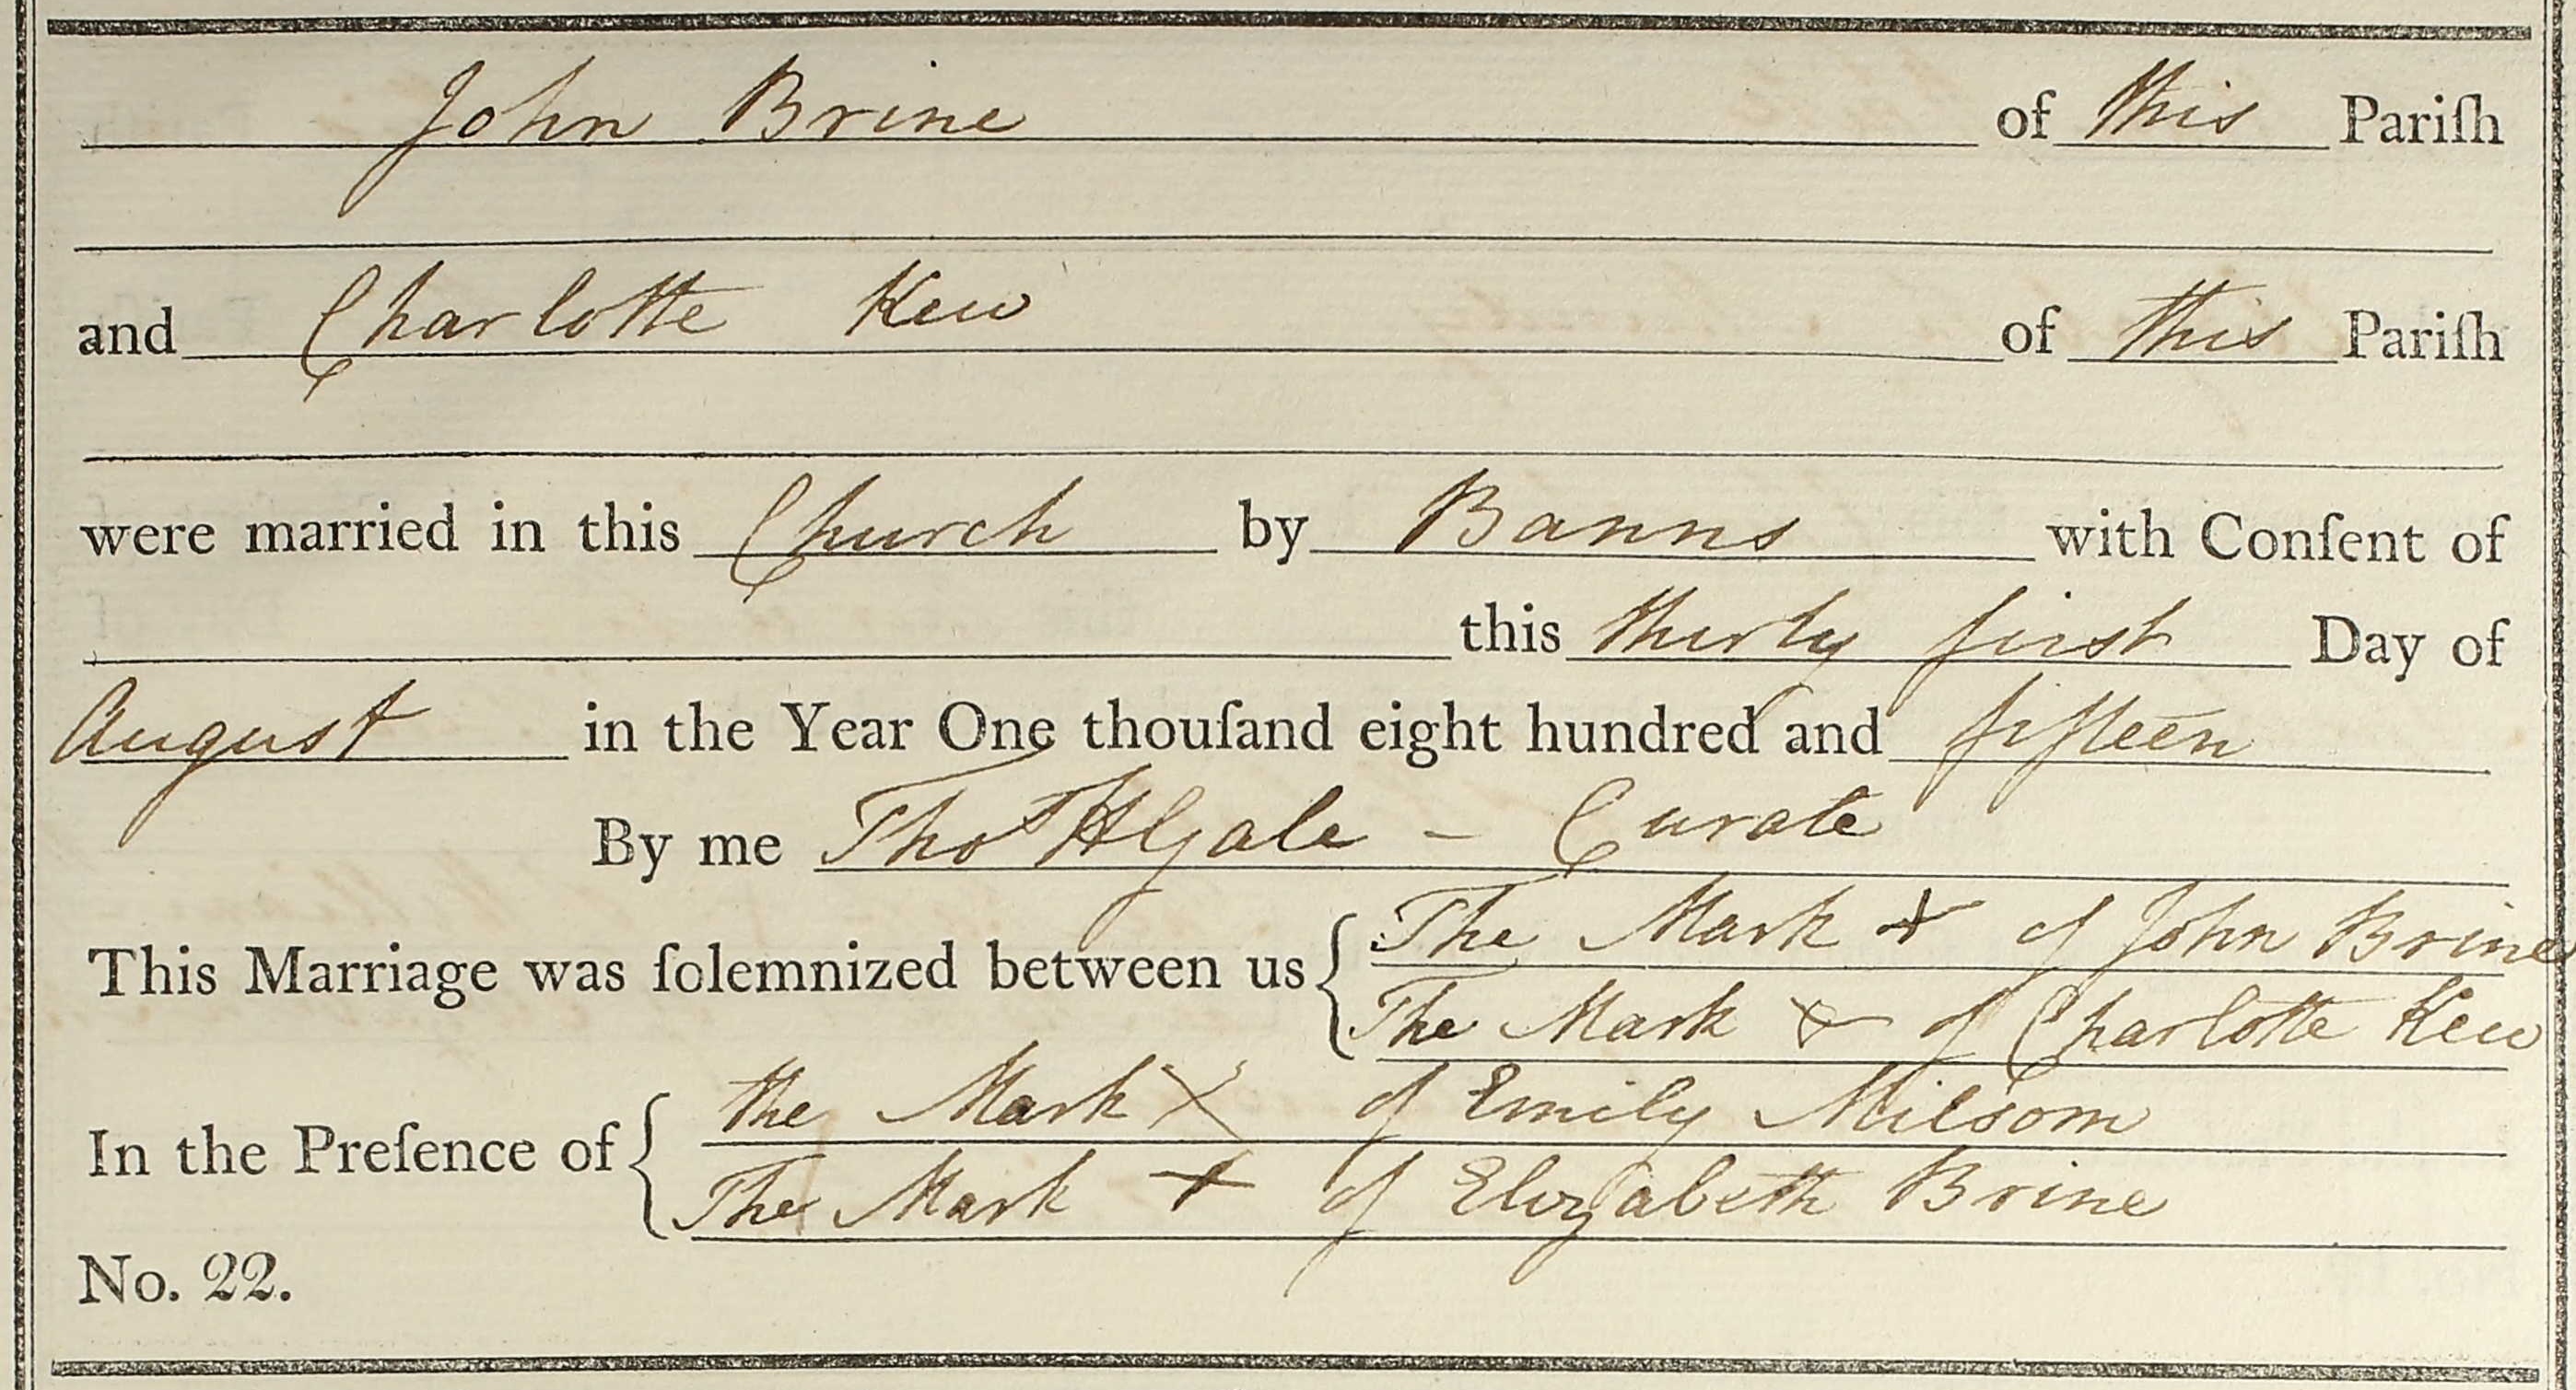 John Brine of this Pariſh
and Charlotte Kew of this Pariſh
were married in this Church by Banns with Conſent of
this thirty first Day of
August in the Year One thouſand eight hundred and fifteen
By me Thos H Gale - Curate
This Marriage was ſolemnized between us { The Mark + of John Brine
The Mark + of Charlotte Kew
In the Preſence of { the Mark X of Emily Milsom
The Mark + of Elizabeth Brine
No. 22.